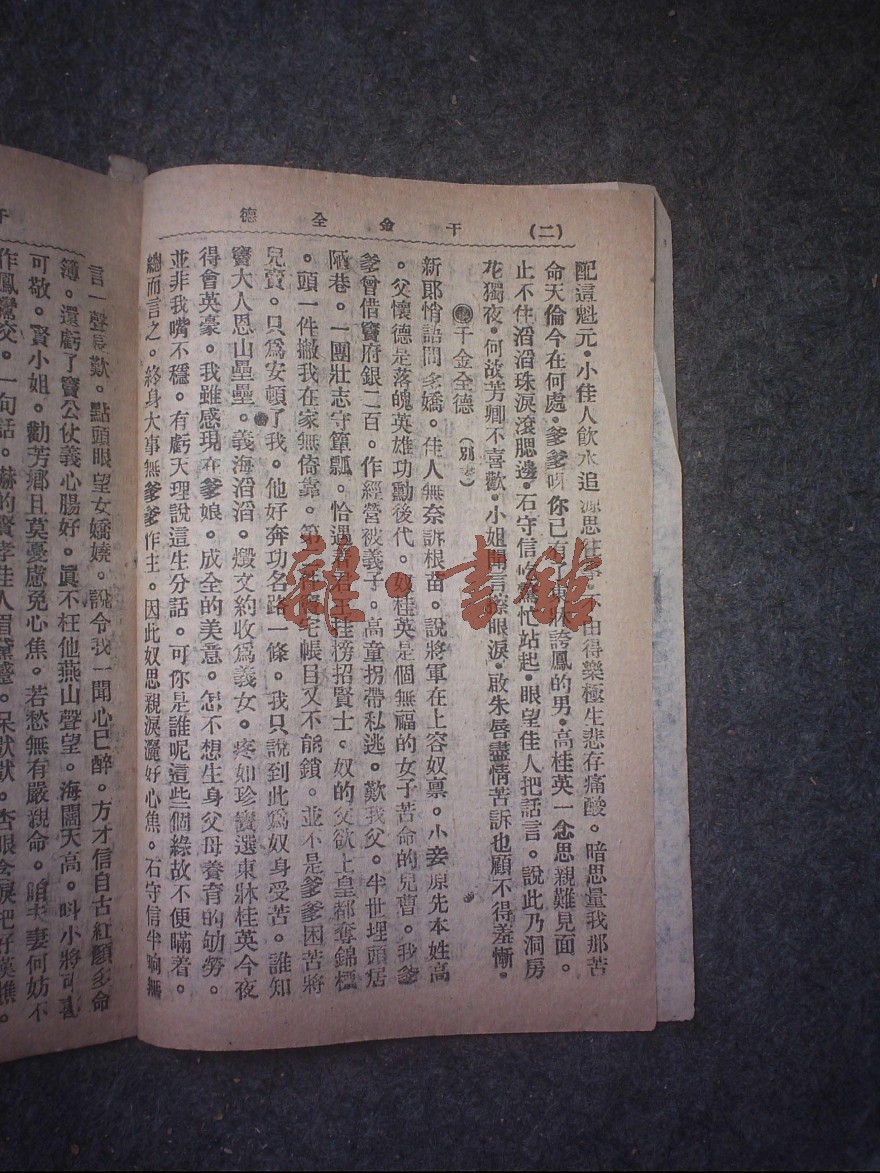 (二) 千金全德
配這魁元。小佳人飲水追源思往事。不由得樂極生悲存痛酸。暗思量我那苦
命天倫今在何處。爹爹呌你已有了東牀誇鳳的男。高桂英一念思親難見面。
止不住滔滔珠淚滾腮邊。石守信吃驚忙站起。眼望佳人把話言。說此乃洞房
花獨夜。何故芳卿不喜歡。小姐聞言擦眼淚。啟朱唇盡情苦訴也顧不得羞慚。
千金全德
新郎悄語問多嬌。佳人無奈訴根苗。說將軍在上容奴禀。小妾原先本姓高
。父懷德是落魄英雄功勳後代。奴桂英是個無福的女子苦命的兒曹。我爹
爹曾借竇府銀二百。作經營被義子。高童拐帶私逃。歎我父。半世埋頭居
陋巷。一團壯志守簞瓢。恰遇着君王挂榜招賢士。奴的父欲上皇都奪錦標
。頭一件撇我在家無倚靠。第二件竇宅帳目又不能鎖。並不是爹爹困苦將
兒賣。只爲安頓了我。他好奔功名路一條。我只說到此爲奴身受苦。誰知
竇大人恩山壘壘。義海滔滔。燬文約收爲義女。疼如珍寶選東牀桂英今夜
得會英豪。我雖感現在爹娘。成全的美意。怎不想生身父母養育的劬勞。
並非我嘴不穩。有虧天理說這生分話。可你是誰呢這些個綠故不便瞞着。
總而言之。終身大事無爹爹作主。因此奴思親淚灑好心焦。石守信半晌無
言一聲長歎。點頭眼望女嬌嬈。說令我一聞心已醉。方才信自古紅顏多命
簿。還虧了竇公仗義心腸好。眞不枉他燕山聲望。海闊天高。呌小將可喜
可敬。賢小姐。勸芳鄉且莫憂慮免心焦。若愁無有嚴親命。咱夫妻何妨不
作鳳鸞交。一句話。嚇的賢孝佳人眉黛蹙。呆獃獃。杏眼含淚把好漢瞧。
雜·書館